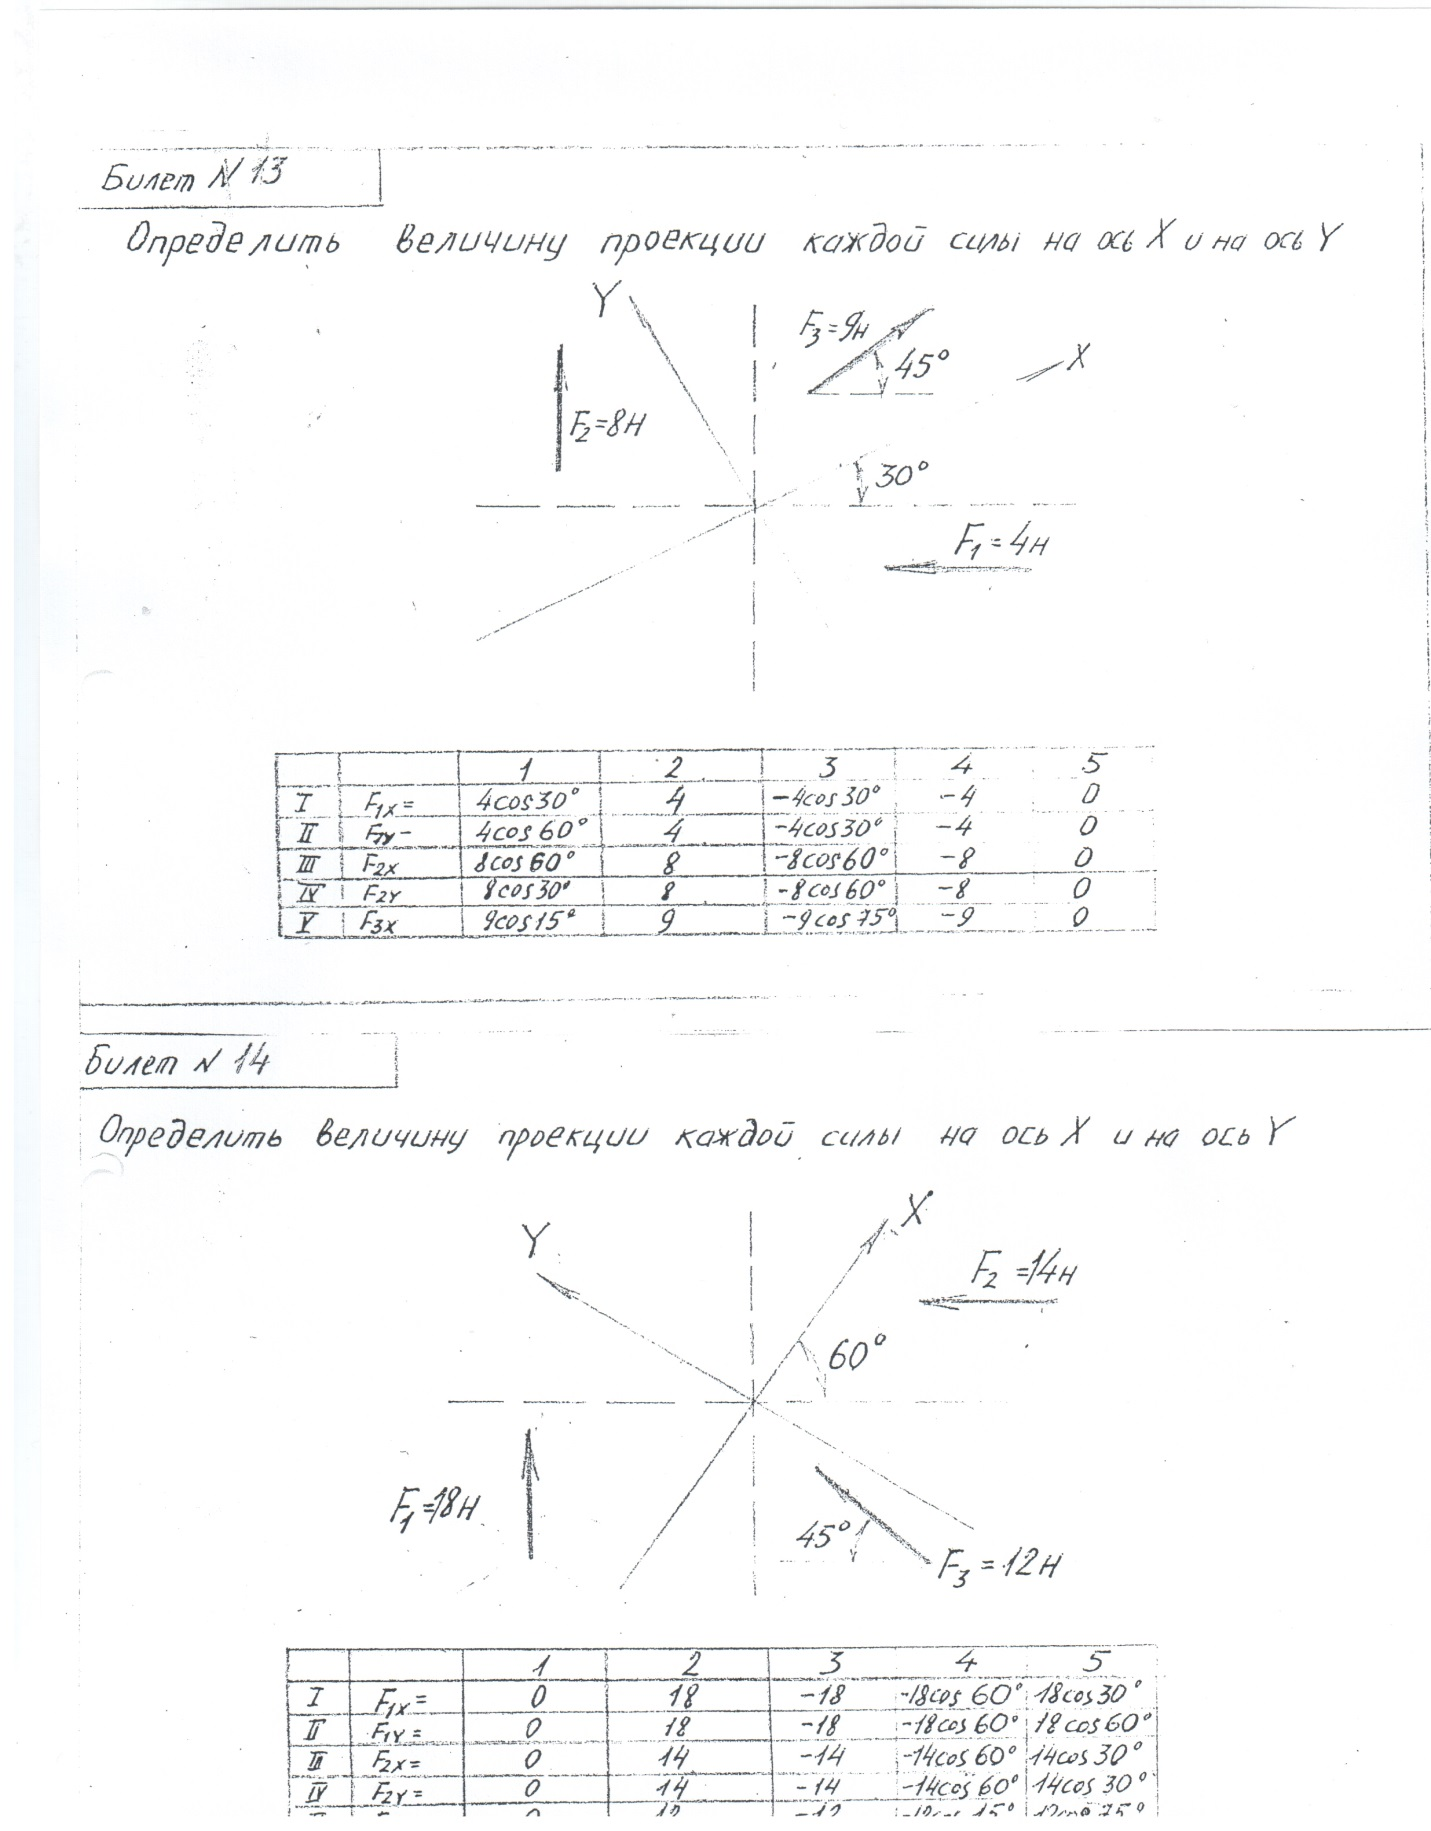 Билет N 13
Определить величину проекции каждой силы на ось X и на ось Y
Y
F3=9н
45°
X
F2=8н
30°
F1=4н
1 2 3 4 5
I F1X= 4cos30° 4 -4cos30° -4 0
II F1Y- 4cos60° 4 -4cos30° -4 0
III F2X 8cos60° 8 -8cos60° -8 0
IV F2Y 8cos30° 8 -8cos60° -8 0
V F3X 9cos15° 9 -9cos75° -9 0
Билет N 14
Определить величину проекции каждой силы на ось X и на ось Y
X
Y
F2=14н
60°
F1=18н
45°
F3=12н
1 2 3 4 5
I F1X= 0 18 -18 -18cos60° 18cos30°
II F1Y= 0 18 -18 -18cos60° 18cos60°
III F2X= 0 14 -14 -14cos60° 14cos30°
IV F2Y= 0 14 -14 -14cos60° 14cos30°